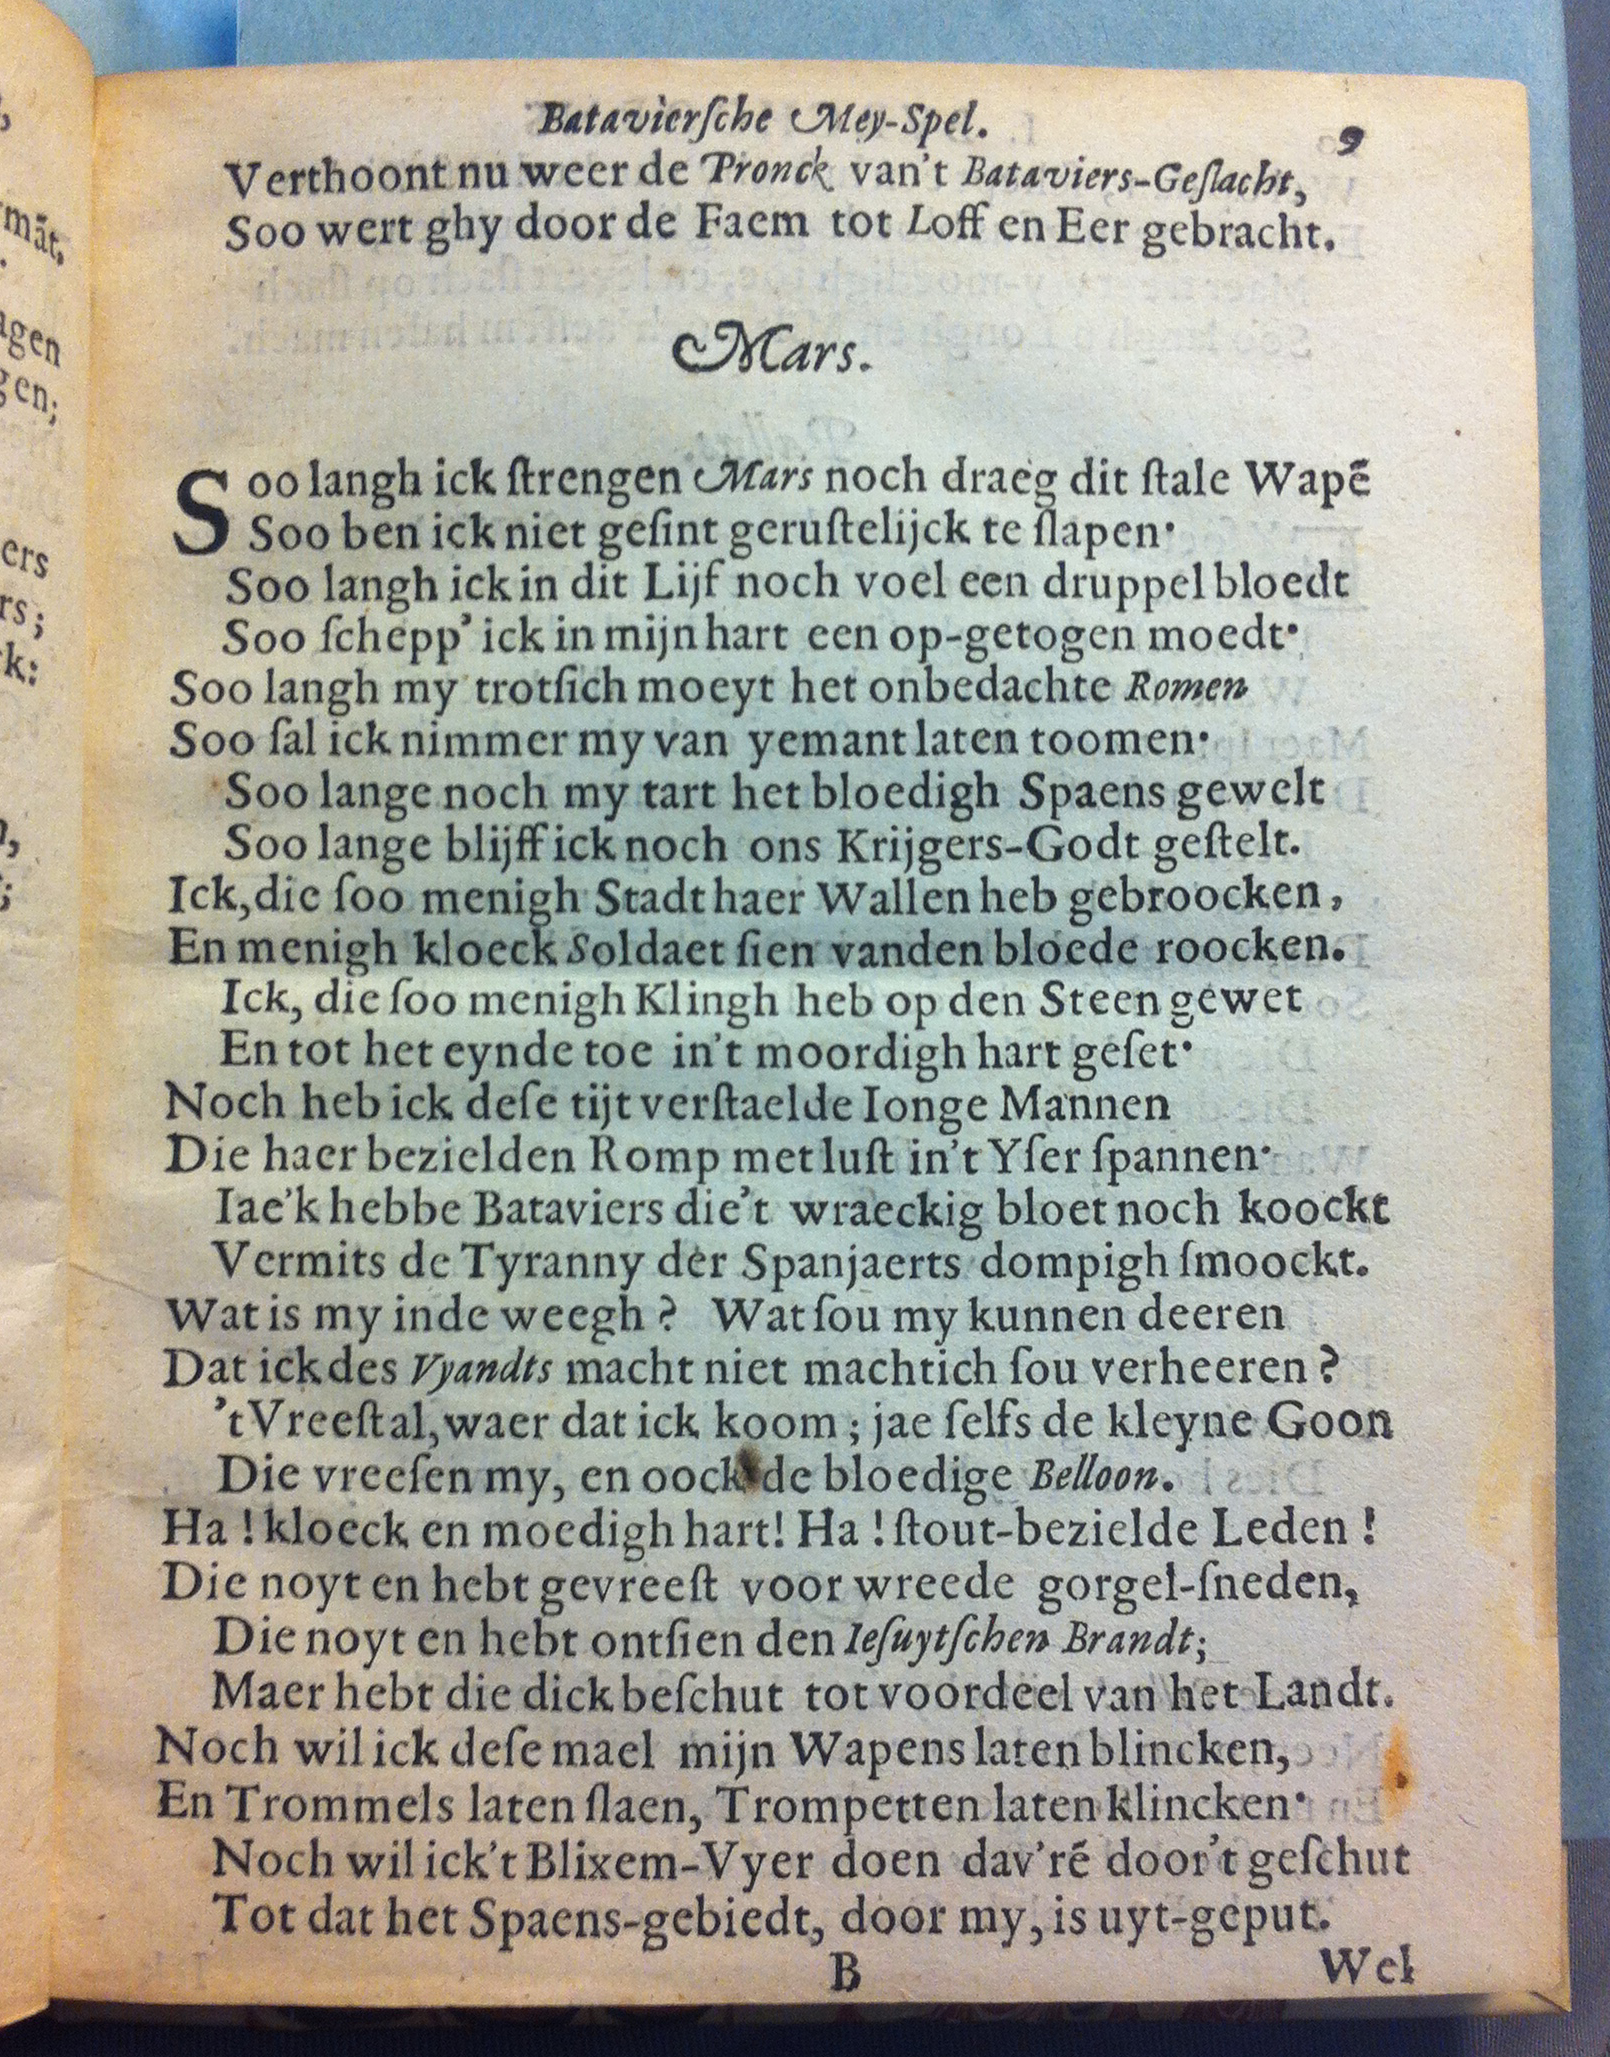 Batavierſche Mey-Spel. 9
Verthoont nu weer de Pronck van't Bataviers-Geſlacht,
Soo wert ghy door de Faem tot Loff en Eer gebracht.
Mars.
Soo langh ick ſtrengen Mars noch draeg dit ſtale Wapẽ
Soo ben ick niet geſint geruſtelijck te ſlapen·
Soo langh ick in dit Lijf noch voel een druppel bloedt
Soo ſchepp' ick in mijn hart een op-getogen moedt·
Soo langh my trotſich moeyt het onbedachte Romen
Soo ſal ick nimmer my van yemant laten toomen·
Soo lange noch my tart het bloedigh Spaens gewelt
Soo lange blijff ick noch ons Krijgers-Godt geſtelt.
Ick, die ſoo menigh Stadt haer Wallen heb gebroocken,
En menigh kloeck Soldaet ſien vanden bloede roocken.
Ick, die ſoo menigh Klingh heb op den Steen gewet
En tot het eynde toe in't moordigh hart geſet·
Noch heb ick deſe tijt verſtaelde Ionge Mannen
Die haer bezielden Romp met luſt in't Yſer ſpannen·
Iae'k hebbe Bataviers die't wraeckig bloet noch koockt
Vermits de Tyranny der Spanjaerts dompigh ſmoockt.
Wat is my inde weegh? Wat ſou my kunnen deeren
Dat ick des Vyandts macht niet machtich ſou verheeren?
't Vreeſt al, waer dat ick koom; jae ſelfs de kleyne Goon
Die vreeſen my, en oock de bloedige Belloon.
Ha! kloeck en moedigh hart! Ha! ſtout-bezielde Leden!
Die noyt en hebt gevreeſt voor wreede gorgel-ſneden,
Die noyt en hebt ontſien den Ieſuytſchen Brandt;
Maer hebt die dick beſchut tot voordeel van het Landt.
Noch wil ick deſe mael mijn Wapens laten blincken,
En Trommels laten ſlaen, Trompetten laten klincken·
Noch wil ick't Blixem-Vyer doen dav'rẽ door't geſchut
Tot dat het Spaens-gebiedt, door my, is uyt-geput.
B Wel
mãt.
agen
gen;
ers
rs;
k: